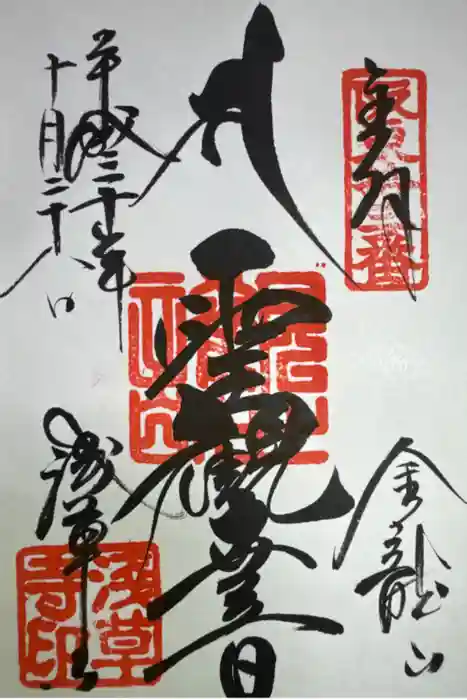 奉拝
金龍山
聖観世音
平成三十年
十月二十八日
浅草寺
浅草寺印